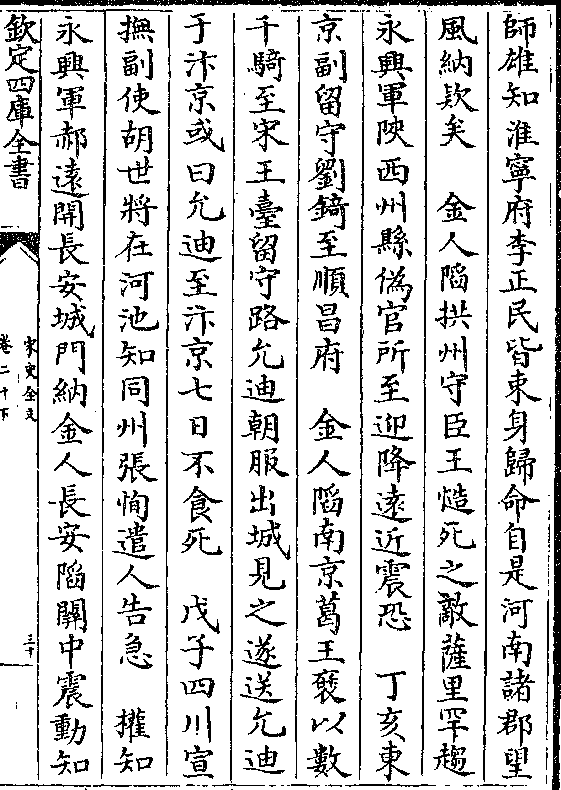 師雄知淮寧府李正民皆束身歸命自是河南諸郡望
風納欵矣　金人䧟拱州守臣王慥死之敵薩里罕趨
永興軍陜西州縣偽官所至迎降逺近震恐　丁亥東
京副留守劉錡至順昌府　金人䧟南京葛王褎以數
千騎至宋王臺留守路允迪朝服出城見之遂送允迪
于汴京或曰允迪至汴京七日不食死　戊子四川宣
撫副使胡世將在河池知同州張恂遣人告急　㩲知
永興軍郝逺開長安城門納金人長安䧟關中震動知
欽定四庫全書
宋史全文
卷二十下
三十